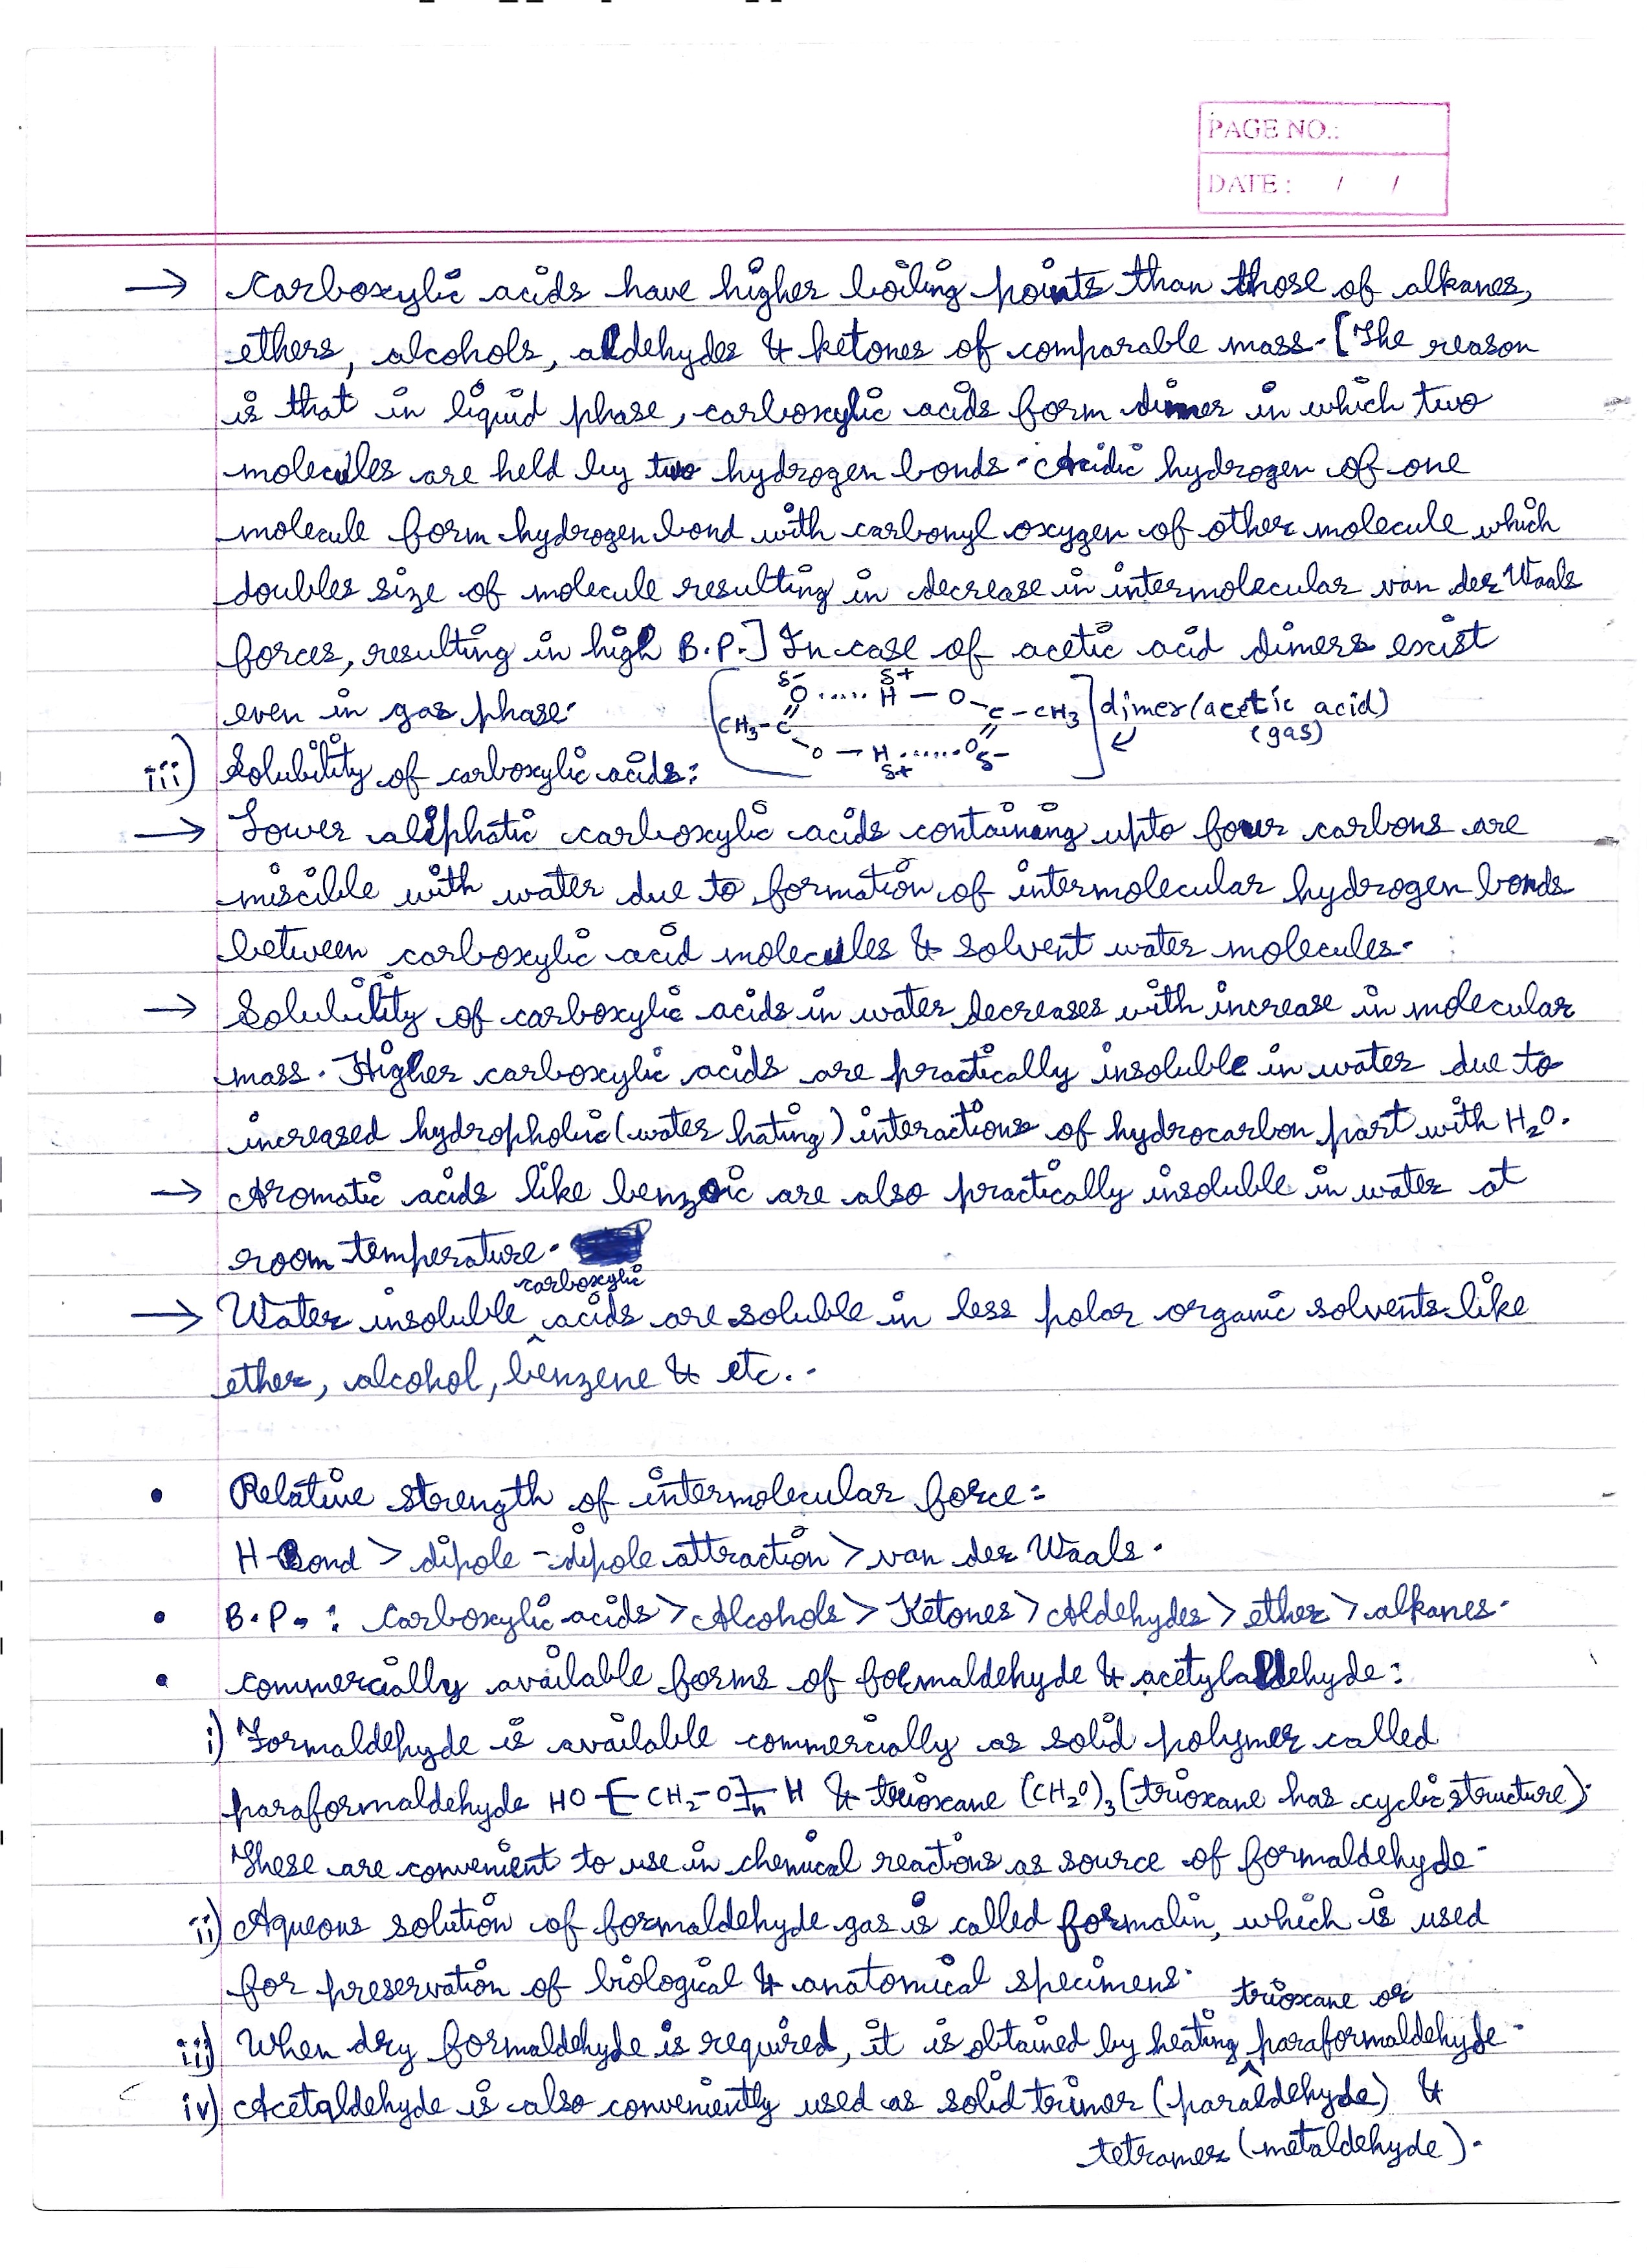 PAGE NO.:
DATE : / /
→ Carboxylic acids have higher boiling points than those of alkanes,
ethers, alcohols, aldehydes & ketones of comparable mass. [The reason
is that in liquid phase, carboxylic acids form dimer in which two
molecules are held by two hydrogen bonds. Acidic hydrogen of one
molecule form hydrogen bond with carbonyl oxygen of other molecule which
doubles size of molecule resulting in decrease in intermolecular van der Waals
forces, resulting in high B.P.] In case of acetic acid dimers exist
even in gas phase.
δ- δ+
O ..... H — O
CH3-C C-CH3] dimer (acetic acid)
(gas)
O — H ...... O δ-
δ+
iii) Solubility of carboxylic acids:
→ Lower aliphatic carboxylic acids containing upto four carbons are
miscible with water due to formation of intermolecular hydrogen bonds
between carboxylic acid molecules & solvent water molecules.
→ Solubility of carboxylic acids in water decreases with increase in molecular
mass. Higher carboxylic acids are practically insoluble in water due to
increased hydrophobic (water hating) interactions of hydrocarbon part with H2O.
→ Aromatic acids like benzoic are also practically insoluble in water at
room temperature.
→ Water insoluble carboxylic acids are soluble in less polar organic solvents like
ether, alcohol, benzene & etc..
• Relative strength of intermolecular force:
H-Bond > dipole-dipole attraction > van der Waals.
• B.P. : Carboxylic acids > Alcohols > Ketones > Aldehydes > ether > alkanes.
• Commercially available forms of formaldehyde & acetylaldehyde:
i) Formaldehyde is available commercially as solid polymer called
paraformaldehyde HO-[CH2-O]n-H & trioxane (CH2O)3 (trioxane has cyclic structure).
These are convenient to use in chemical reactions as source of formaldehyde.
ii) Aqueous solution of formaldehyde gas is called formalin, which is used
for preservation of biological & anatomical specimens.
iii) When dry formaldehyde is required, it is obtained by heating trioxane or paraformaldehyde.
iv) Acetaldehyde is also conveniently used as solid trimer (paraldehyde) &
tetramer (metaldehyde).